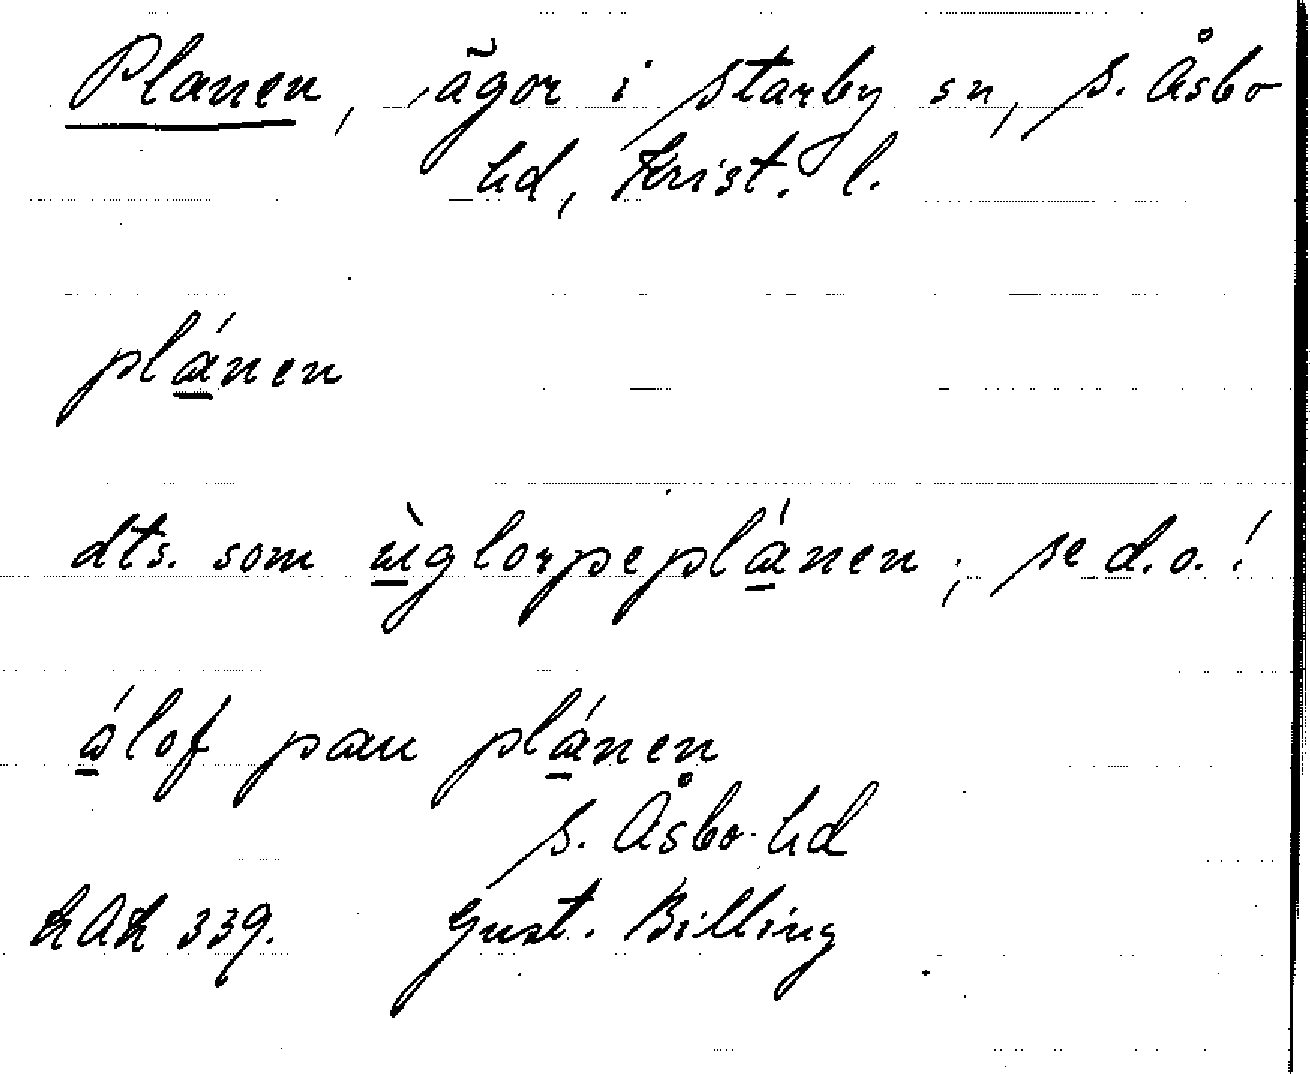 Planen, ägor i Starby sn, S. Åsbo
hd, Krist. l.
plánen
dts. som ùglorpeplánen; se d.o.!
álof pau plánen
S. Åsbo hd
KAK 339. Gust. Billing